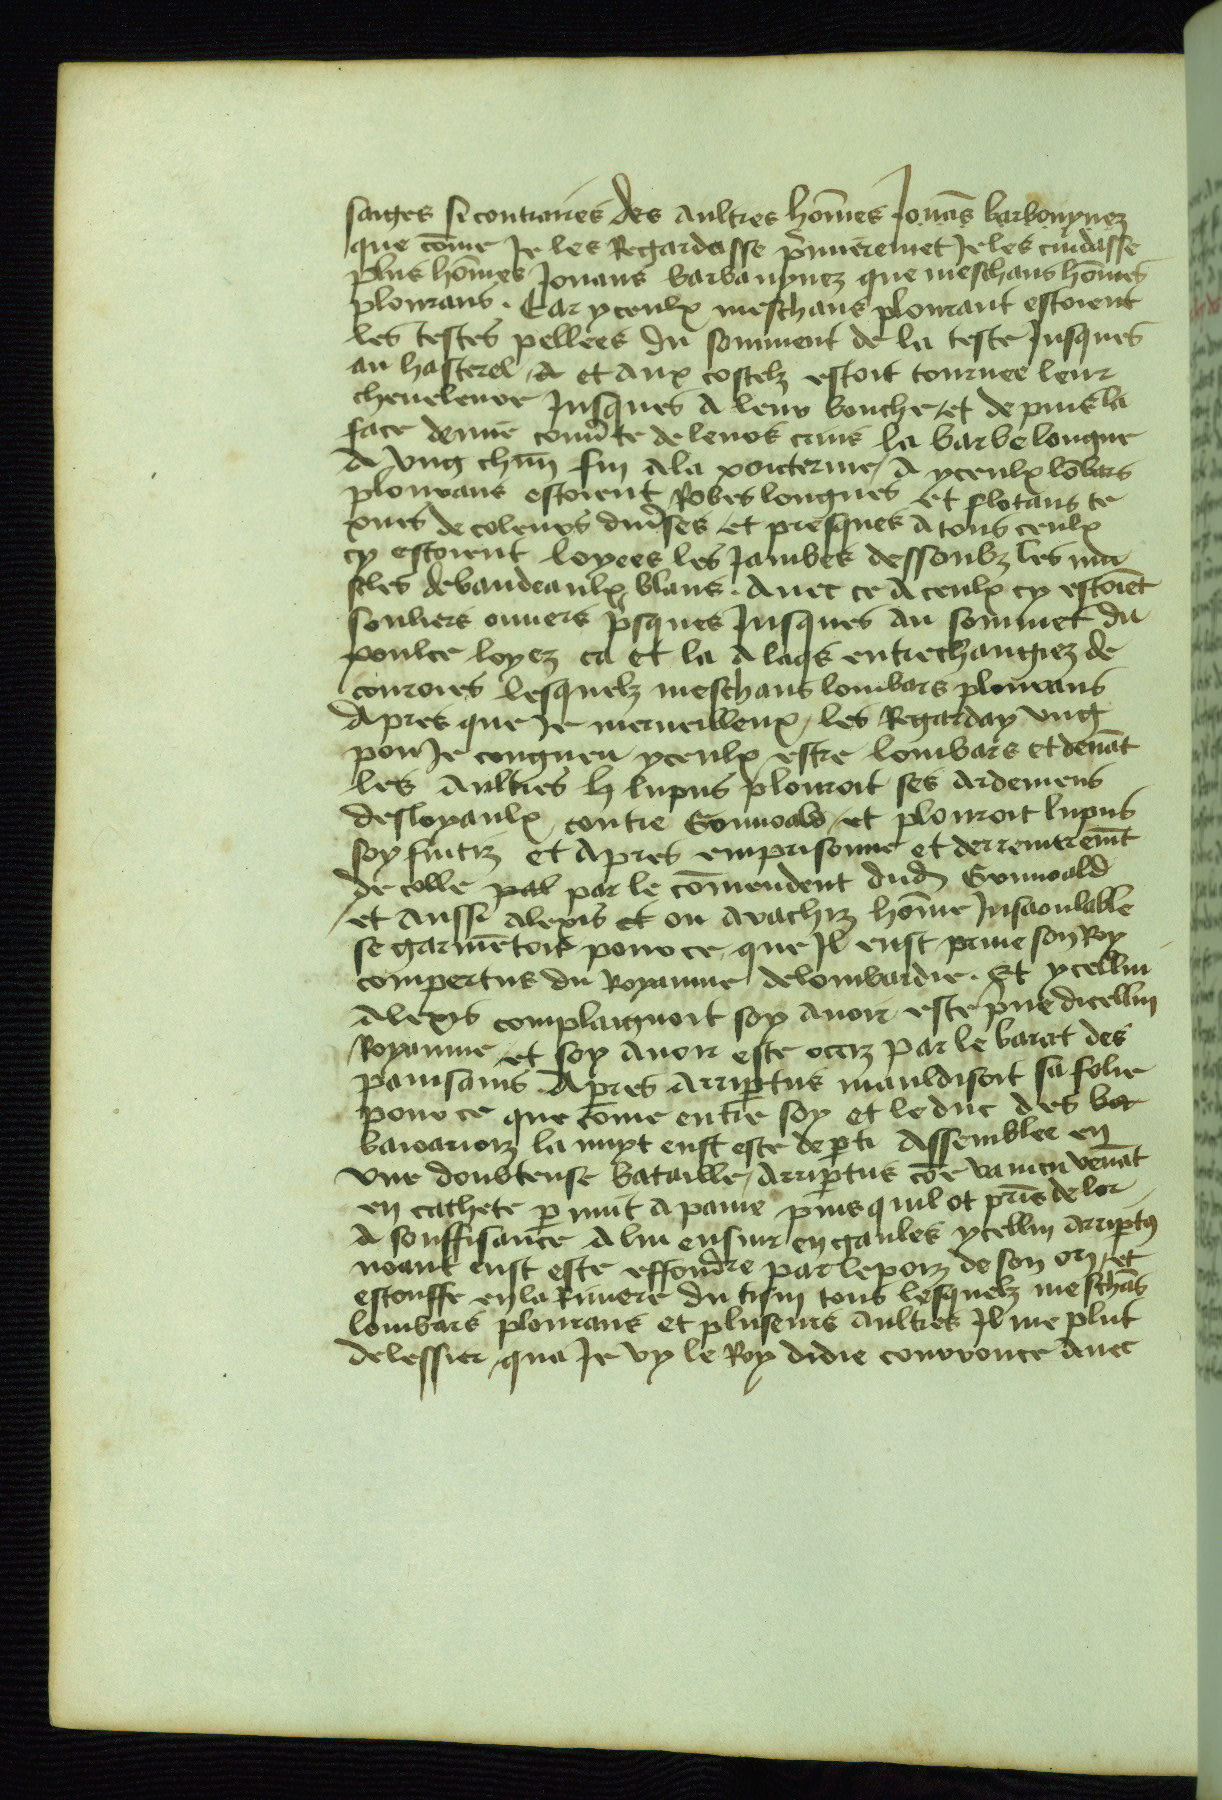 saiges si contraires des aultres hom̄es Jouās barbouynez
que cōme Je les Regardasse p̄mieremēt Je les cuidasse
plus hom̄es Jouans barbauynez que meschans hom̄es
plourans . Car yceulx meschans plourant estoient
les testes pellees Du somment de la teste Jusques
au hasterel A et aux costelz estoit tournee leur
cheueleure Jusques a leur bouche et de puis la
face
A Ung chūn fin a la poicterine A yceulx lōbars
plourans estoient Robes longues et flotans te
xues de coleurs diu̾ses et presques a tous ceulx
cy estoient loyees les Jambes dessoubz les mu
scles de bandeaulx blans . Auec ce A ceulx cy estoiēt
souliers ouuers p̄sques Jusques au sommet du
poulce loyez ca et la a laqs entrechangiez de
couroies lesquelz meschans lombars plourans
Apres que Je merueilleux les Regarday ung
pou Je congneu yceulx estre lombars et deuāt
les aultres h lupus plouroit ses ardemens
desloyaulx contre Gonuoald et plouroit lupus
soy fuitiz et apres emprisonne et derrenieremēt
de colle pal par le cōmendent dud Gonuoald
et aussi alexis et ou auachiz hom̄e Insaoulable
se garmētoit pour ce que Il eust priue son Roy
compertus du Royaume de lombardie . Et ycellui
Alexis complaignoit soy auoir este p̄ue dicellui
Royaume et soy auoir este occiz par le barat des
pauisans Apres arrip̄tus mauldisoit sa folie
pour ce que cōme entre soy et le duc des ba
bauarioiz la nuyt eust este de p̄ti assemblee en
une doubteuse bataille arrip̄tus cōe vaincu venāt
en cachete p̄ nuit a pauie puis quil ot p̄ns de lor
a souffisance a lui ensuir en gaules ycellui arrip̄tꝯ
noant eust este effondre par le poiz de son or et
estouffe en la Riuiere du tisin tous lesquelz meschās
lombars plourans et pluseurs aultres Il me plut
delessier qua Je vy le Roy didie courrouce auec